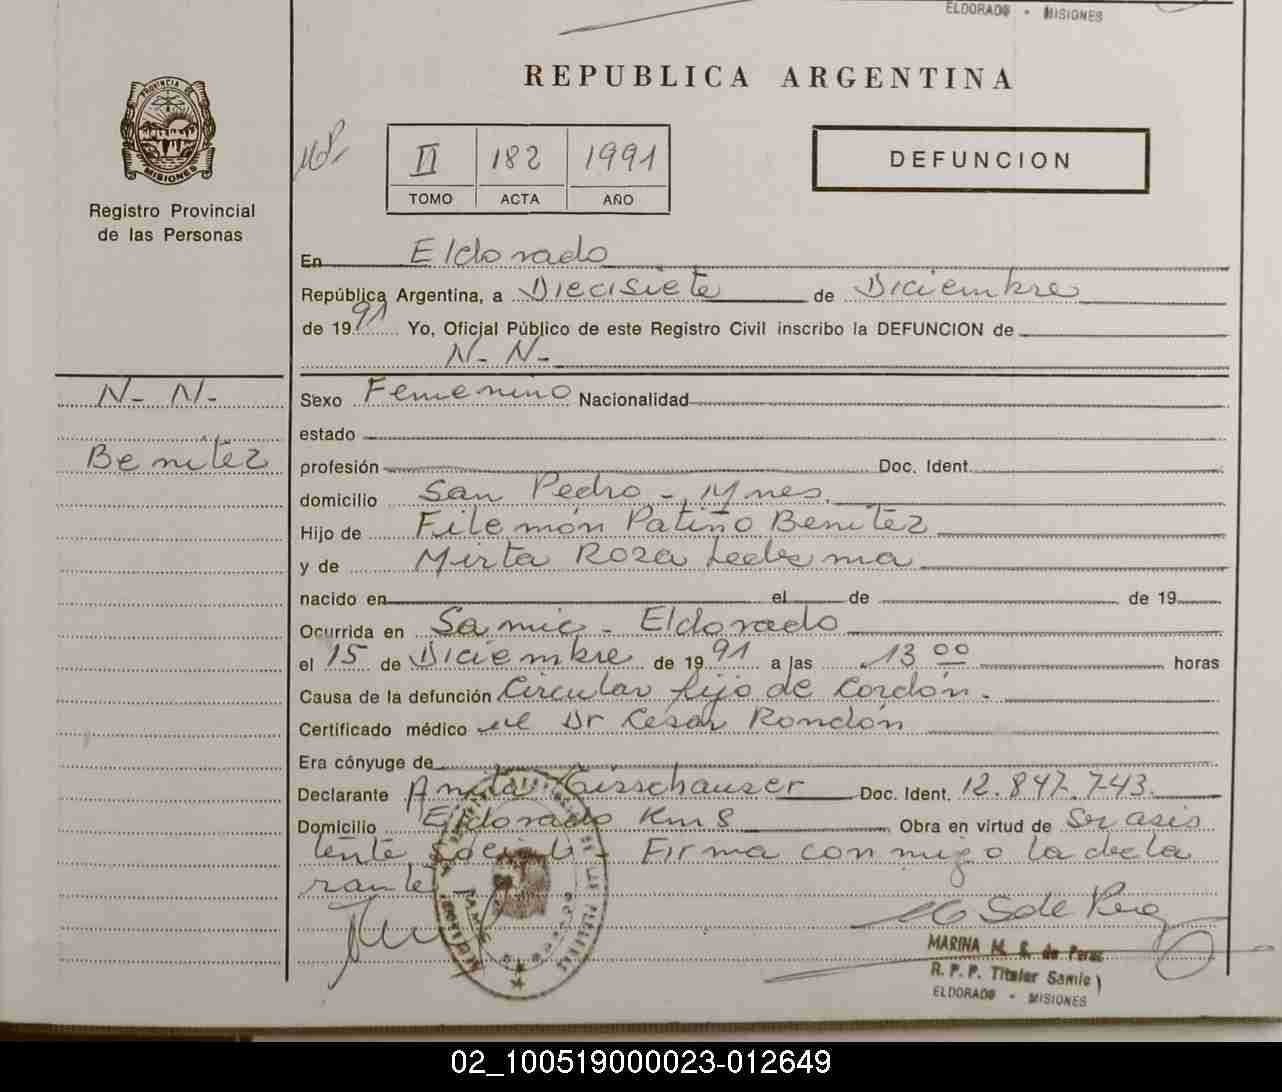 ELDORADO - MISIONES
REPUBLICA ARGENTINA
PROVINCIA DE
MISIONES
Registro Provincial
de las Personas
II 182 1991
TOMO ACTA AÑO
DEFUNCION
En Eldorado
República Argentina, a Diecisiete de Diciembre
de 1991 Yo, Oficial Público de este Registro Civil inscribo la DEFUNCION de
N- N-
N- N-
Benitez
Sexo Femenino Nacionalidad
estado
profesión Doc. Ident.
domicilio San Pedro - Mnes.
Hijo de Filemón Patiño Benitez
y de Mirta Rosa Ledesma
nacido en el de de 19
Ocurrida en Samic - Eldorado
el 15 de Diciembre de 1991 a las 13 00 horas
Causa de la defunción Circular fijo de Cordón.
Certificado médico del Dr Cesar Rondón
Era cónyuge de
Declarante Anita Doc. Ident. 12.847.743.
Domicilio Eldorado Km 8 Obra en virtud de Ser asis
tente Social - Firma conmigo la decla
rante
MARINA M. S. de Perez
R. P. P. Titular Samic
ELDORADO - MISIONES
02_100519000023-012649